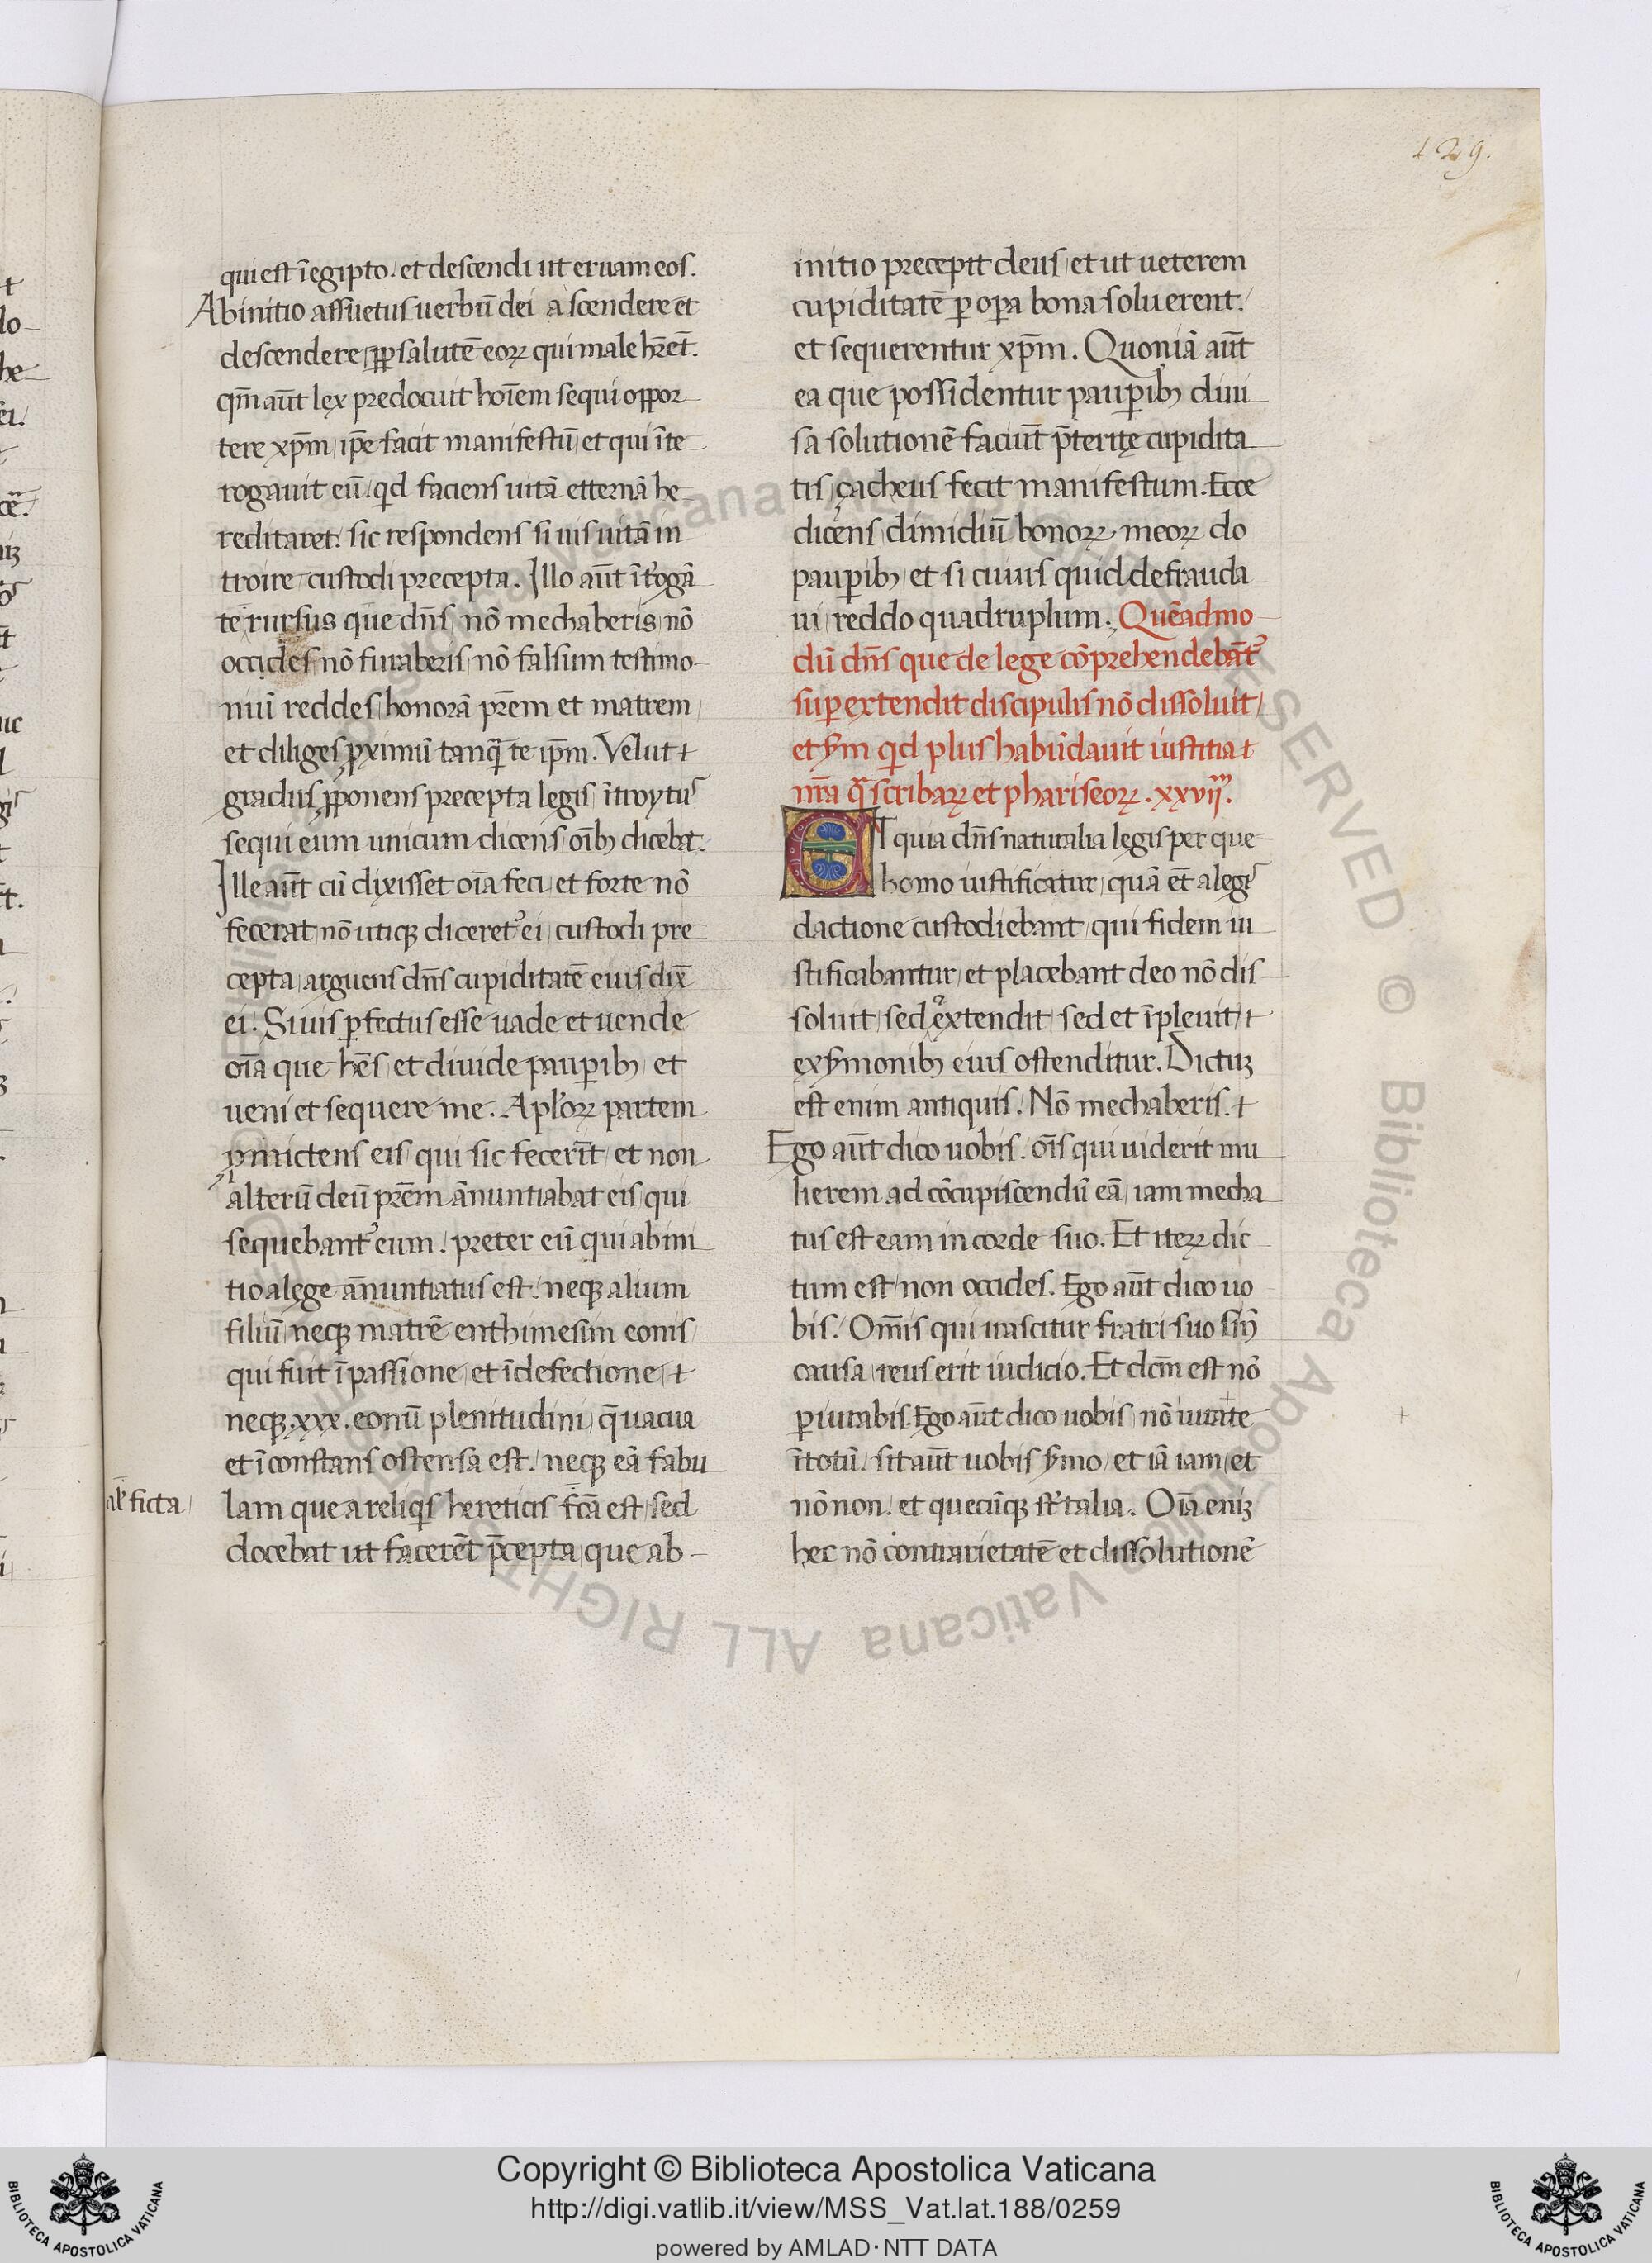 129.
qui est ī egipto. et descendi ut eruam eos.
Ab initio assuetus uerbū dei ascendere et
descendere, ꝓp̱ salutē eoꝝ qui male hr̄et.
qm̄ aūt lex predocuit hoīem sequi oppor-
tere xp̄m, ip̄e facit manifestū, et qui īte
rogauit eū. qd faciens uitā etternā he-
reditaret. sic respondens si uis uitā in
troire custodi precepta. Illo aūt īt'ogā
te rursus que dn̄s, nō mechaberis, nō
occides, nō furaberis, nō falsum testimo-
niū reddes, honorā pr̄em et matrem,
et diliges ꝓximū tanqᷓ te ip̄m. Velut
gradus ꝓponens precepta legis, ītroytus
sequi eum unicum dicens, oīb; dicebat.
Ille aūt cū dixisset oīa feci, et forte nō
fecerat, nō utiqꝫ diceret᷑ ei, custodi pre
cepta, arguens dn̄s cupiditatē eius dix̄
ei. Si uis ꝑfectus esse uade et uende
oīa que hēs, et diuide pauꝑib; et
ueni et sequere me. Apl'oꝝ partem
ꝓmictens eis, qui sic fecerīt, et non
alterū deū pr̄em ānuntiabat eis, qui
sequebant᷑ eum. preter eū qui ab ini
tio a lege an̄nuntiatus est. neqꝫ alium
filiū, neqꝫ matrē enthimesim eonis,
qui fuit ī passione, et ī defectione,
neqꝫ .xxx. eonū plenitudini, q̄ uacua
et īconstans ostensa est. neqꝫ eā fabu
al' ficta
lam que a reliqis hereticis fcā est, sed
docebat ut facerēt p̄cepta, que ab-
initio precepit deus, et ut ueterem
cupiditatē ꝑ oꝑa bona soluerent.
et sequerentur xp̄m. Quoniā aūt
ea que possidentur pauꝑib; diui
sa solutionē faciūt p̄teritę cupidita
tis, çacheus fecit manifestum. Ecce
dicens, dimidiū bonoꝝ meoꝝ do
pauꝑib; et si cuius quid defrauda
ui, reddo quadruplum. Quēadmo-
dū dn̄s que de lege cōprehendebāt᷑
suꝑextendit discipulis nō dissoluit,
et ẏm qd plus habūdauit iustitia
nr̄a qᷓ scribaꝝ et phariseoꝝ. xxvij.
ET quia dn̄s naturalia legis per que
homo iustificatur, quā et̄ a legis
dactione custodiebant, qui fidem iu
stificabantur, et placebant deo nō dis
soluit, sed extendit, sed et īpleuit,
ex ẏmonib; eius ostenditur. Dictuꝫ
est enim antiquis. Nō mechaberis.
Ego aūt dico uobis. oīs qui uiderit mu
lierem ad cōcupiscendū eā, iam mecha
tus est eam in corde suo. Et iteꝝ dic
tum est, non occides. Ego aūt dico uo
bis. Omīs qui irascitur fratri suo sin̄
causa, reus erit iudicio. Et dcm̄ est nō
ꝑiurabis. Ego aūt dico uobis, nō iurate
ī totū. sit aūt uobis ẏmo, et iā iam, et
nō non. et quecūqꝫ st' talia. Oīa eniꝫ
hec nō contrarietatē et dissolutionē
Copyright © Biblioteca Apostolica Vaticana
http://digi.vatlib.it/view/MSS_Vat.lat.188/0259
powered by AMLAD·NTT DATA
BIBLIOTECA APOSTOLICA VATICANA
BIBLIOTECA APOSTOLICA VATICANA